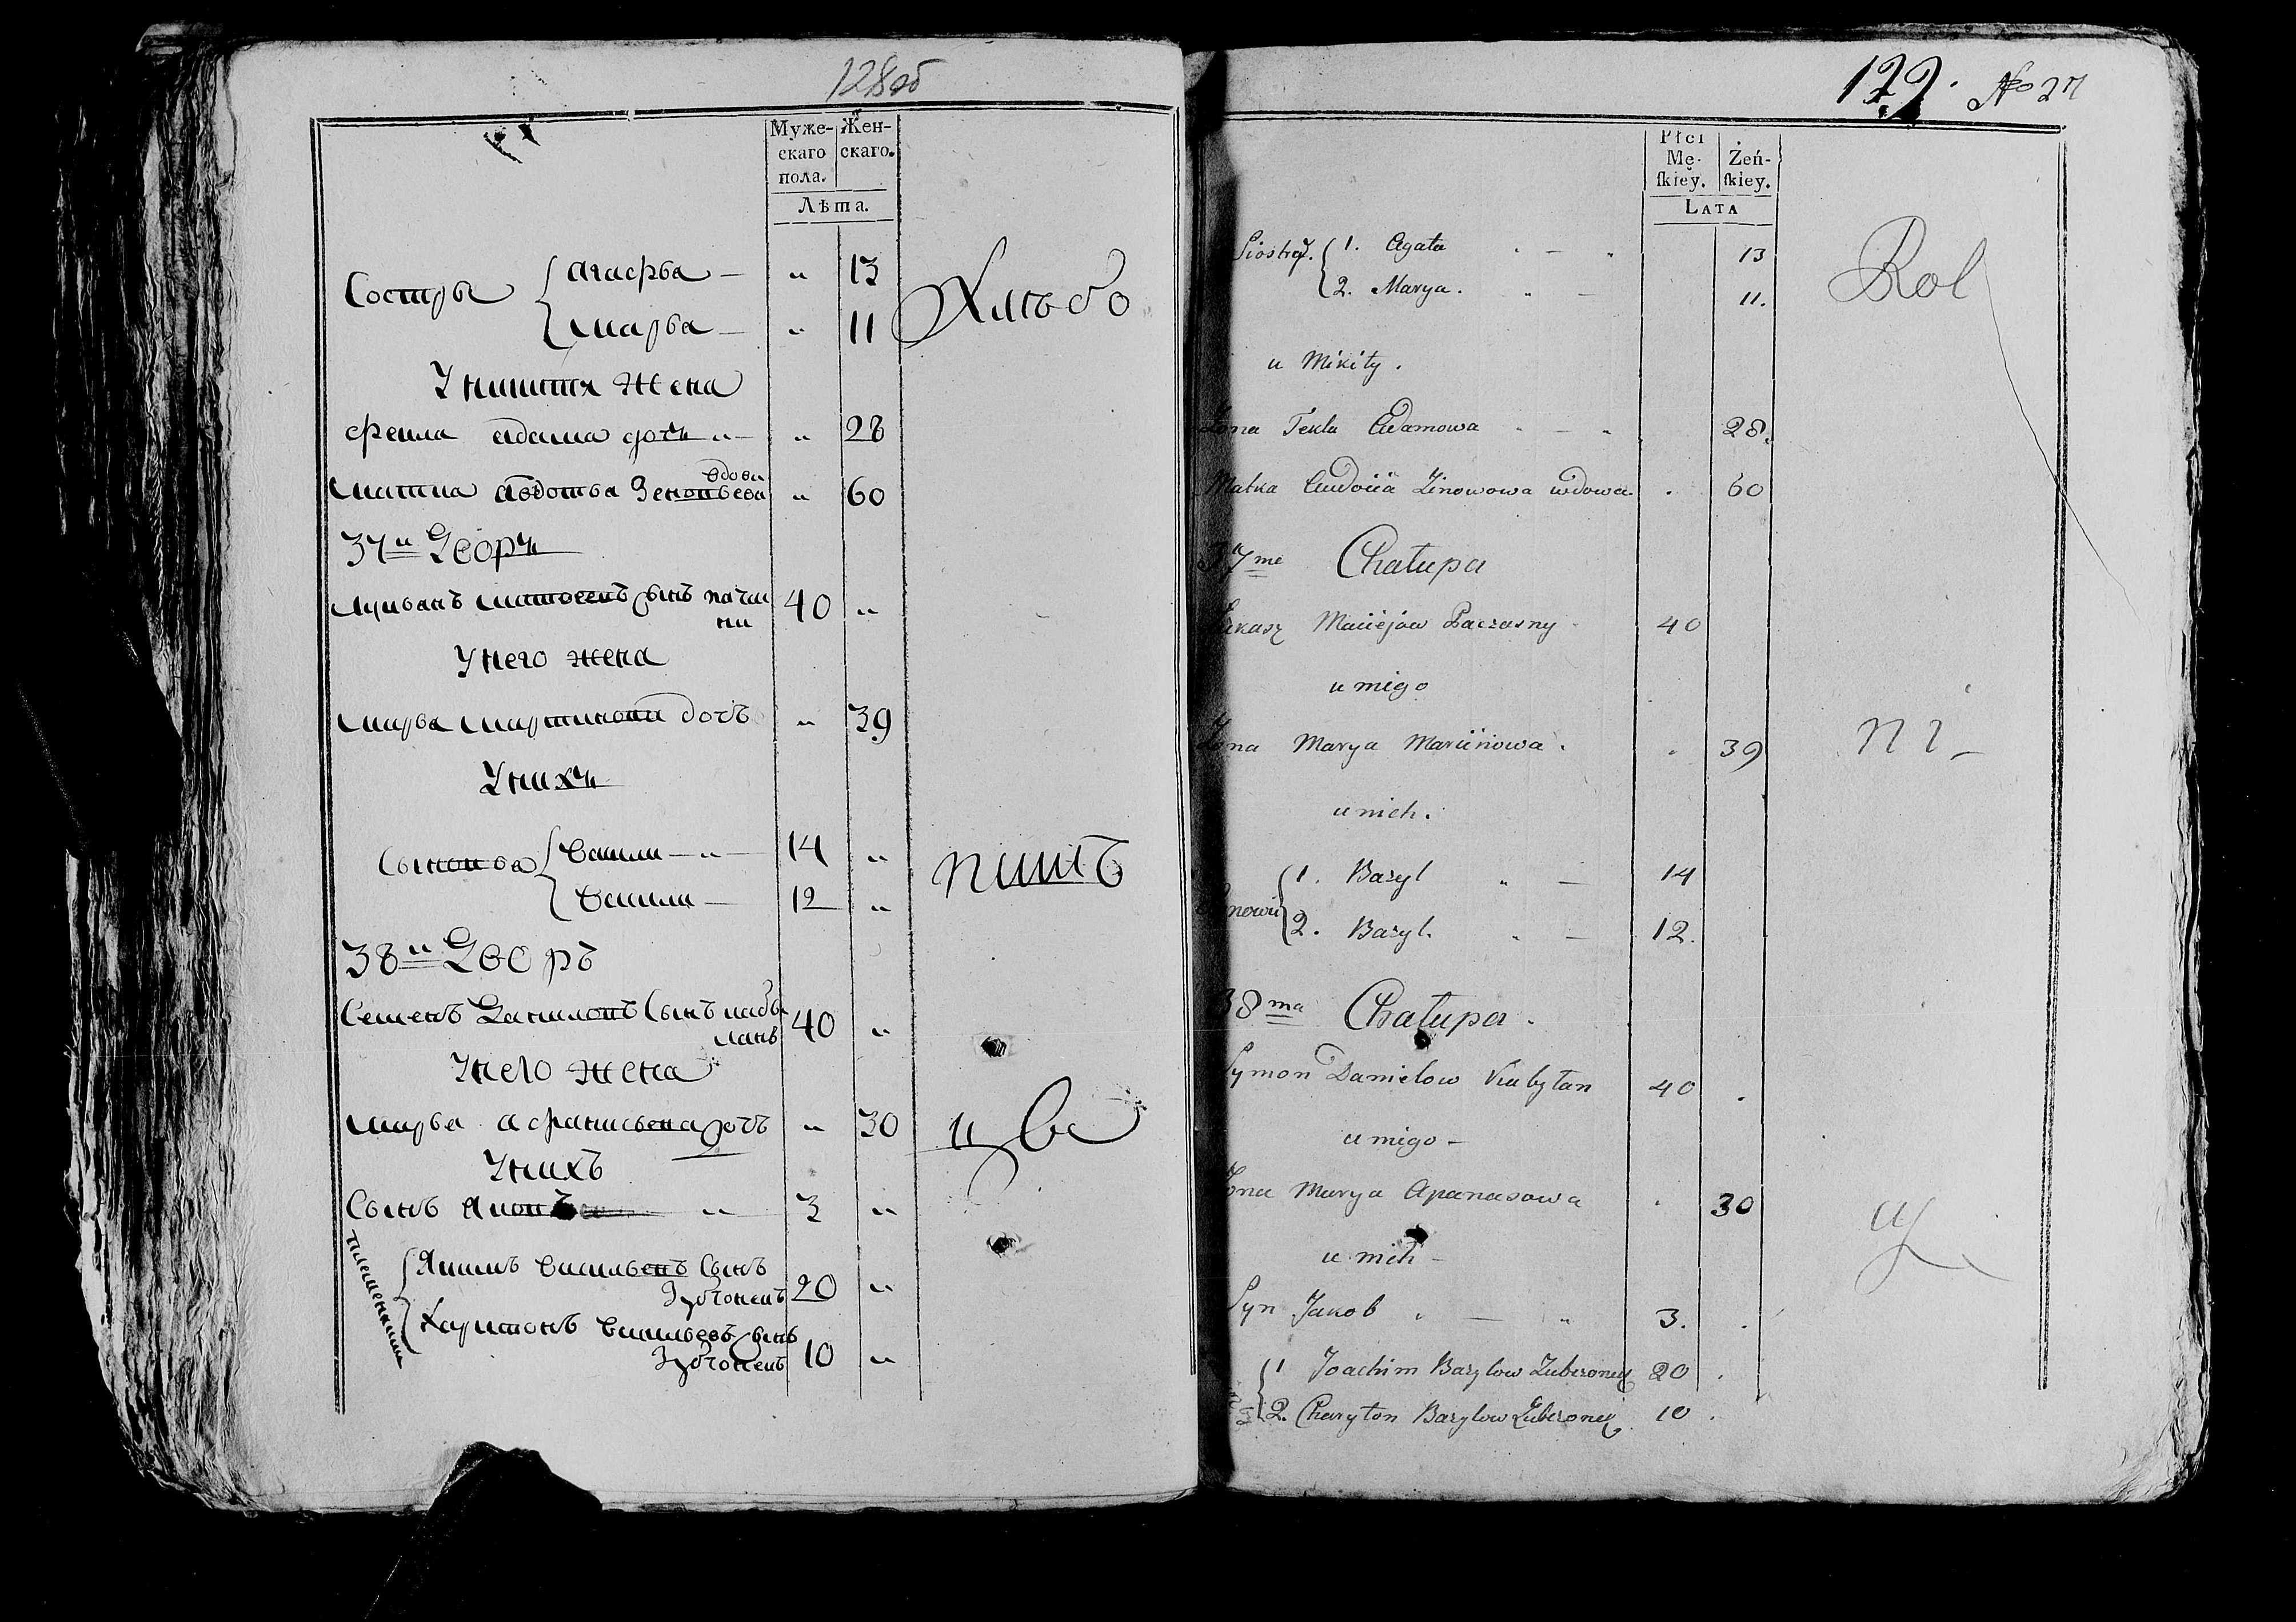 128об
Муже-
скаго
пола.
Жен-
скаго.
Лѣта.
Сестры
Агафья — „ 13
Марья — „ 11
Хлѣбо
У Никиты жена
Фекла Адама дочь „ — „ 28
вдова
Матка Авдотья Зеновьева „ 60
37й Дворъ
Лукашъ Матвеевъ сынъ 40 „
У него жена
Марья Мартинова дочь „ 39
У нихъ
Сыновья
Василь — „ — 14 „
Василь — 12 „
пашъ
38й Дворъ
Семенъ Даниловъ Сынъ 40 „
У него жена
Марья Афанасьева дочъ „ 30
У нихъ
Сынъ Яковъ „ 3 „
племянники
Якимъ Васильевъ Сынъ
Зубчонекъ 20 „
Харитонъ Васильевъ сынъ
Зубчонекъ 10 „
129. No 27
Płci
Mę-
skiey.
Żeń-
skiey.
LATA
Siostry.
1. Agata 13
2. Marya. 11.
Rol
u Mikity.
Żona Tekla Adamowa 28.
Matka Eudoiia Zinowowa wdowa. 60
37me Chałupa
Łukasz Maciejow Paczasny 40
u niego
Żona Marya Marcinowa. 39
ni
u nich.
Synowie
1. Bazyl 14
2. Bazyl. 12.
38ma Chałupa.
Symon Danielow Kubyłan 40
u niego –
Żona Marya Apanasowa 30
u nich –
Syn Jakob 3.
1 Joachim Bazylow Zubczonek 20
2. Charyton Bazylow Zubczonek 10